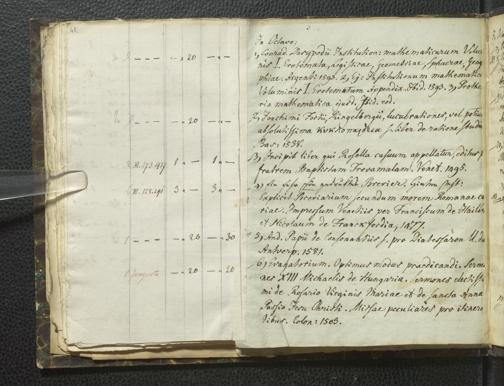 In Octavo.
1, Conrad. Dasypodii Institution: mathematicarum Volu-
nis I. Erotemata, Logisticae, geometriae, sphaerae, Geog-
phiae. Argent: 1593. 2, Ej: Institutionum mathematic
Voluminis I. Erotematum Appendix. Ibid. 1593. 3, Prothe-
ria mathematica ejusd. Ibid. eod.
2, Joachimi Fortii, Ringelbergii, lucubrationes, vel potius
absolutissima κυκλοπαιδεια s. liber de ratione studii
Bas: 1538.
3, Incipit liber qui Rosella casuum appellatur, editus p
fratrem Baptistam Trovamalam. Venet. 1495.
Explicit Breviarium secundum morem Romanae cu-
riae. Impressum Venetiis per Franciscum de Hailbr
et Nicolaum de Franckfordia, 1477.
5, And. Papii de Consonantiis s. pro Diatessaron L. du
Antwerp. 1581.
6, Evagatorium. Optimus modus praedicandi. Sermo-
nes XIII Michaelis de Hungaria. Sermones electissi-
mi de Rosario Virginis Mariae et de Sancta Anna
Passio Jesu Christi. Missae peculiares pro itinera-
tibus. Colon: 1503.
- 20
- 20
1 -
3 -
- 20 - 30
- 20 - 20